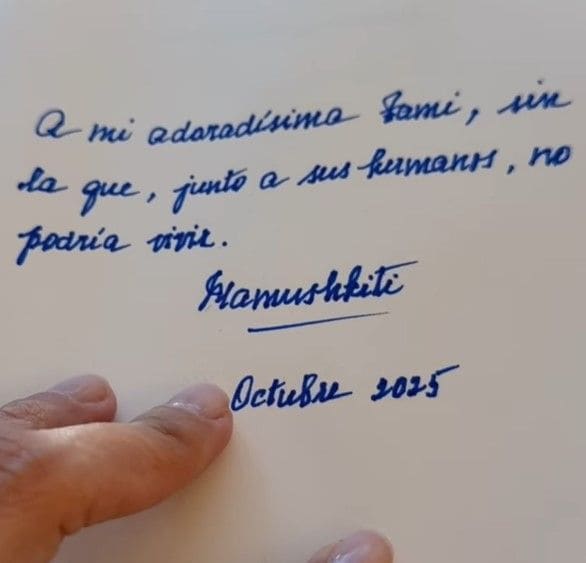 A mi adoradísima Tami, sin
la que, junto a sus humanos, no
podría vivir.
Mamushkiti
Octubre 2025